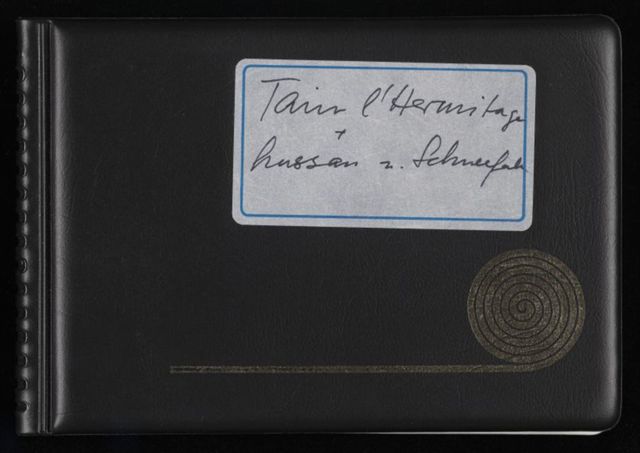 Tain l'Hermitage
+
hussan n. Schneefall